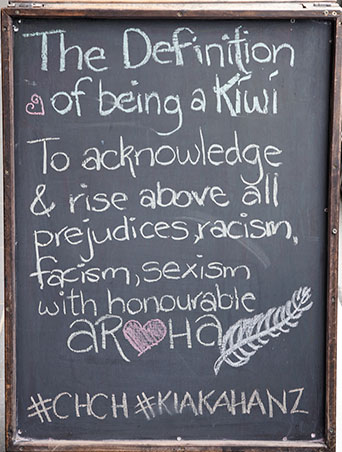 The Definition
of being a Kiwi
To acknowledge
& rise above all
prejudices, racism,
facism, sexism
with honourable
aROHa
#CHCH #KIAKAHANZ